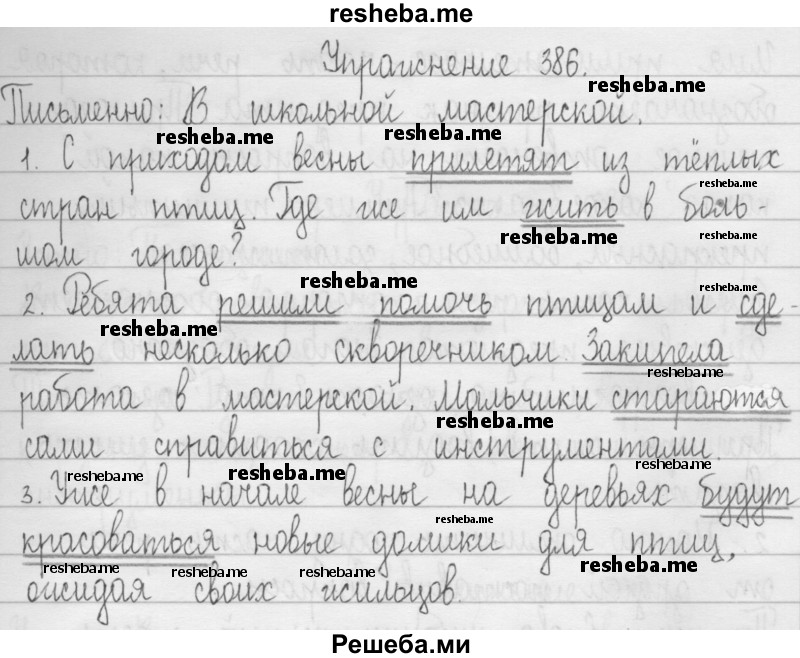 resheba.me
Упражнение 386.
resheba.me
Письменно: В школьной мастерской.
resheba.me resheba.me
1. С приходом весны прилетят из тёплых
resheba.me
стран птиц. Где же им жить в боль-
resheba.me
шом городе?
resheba.me resheba.me
2. Ребята решили помочь птицам и сде-
resheba.me
лать несколько скворечником Закипела
resheba.me
работа в мастерской. Мальчики стараются
resheba.me
сами справиться с инструментами.
resheba.me resheba.me resheba.me
3. Уже в начале весны на деревьях будут
resheba.me
красоваться новые домики для птиц,
resheba.me resheba.me resheba.me resheba.me
ожидая своих жильцов.
Решеба.ми